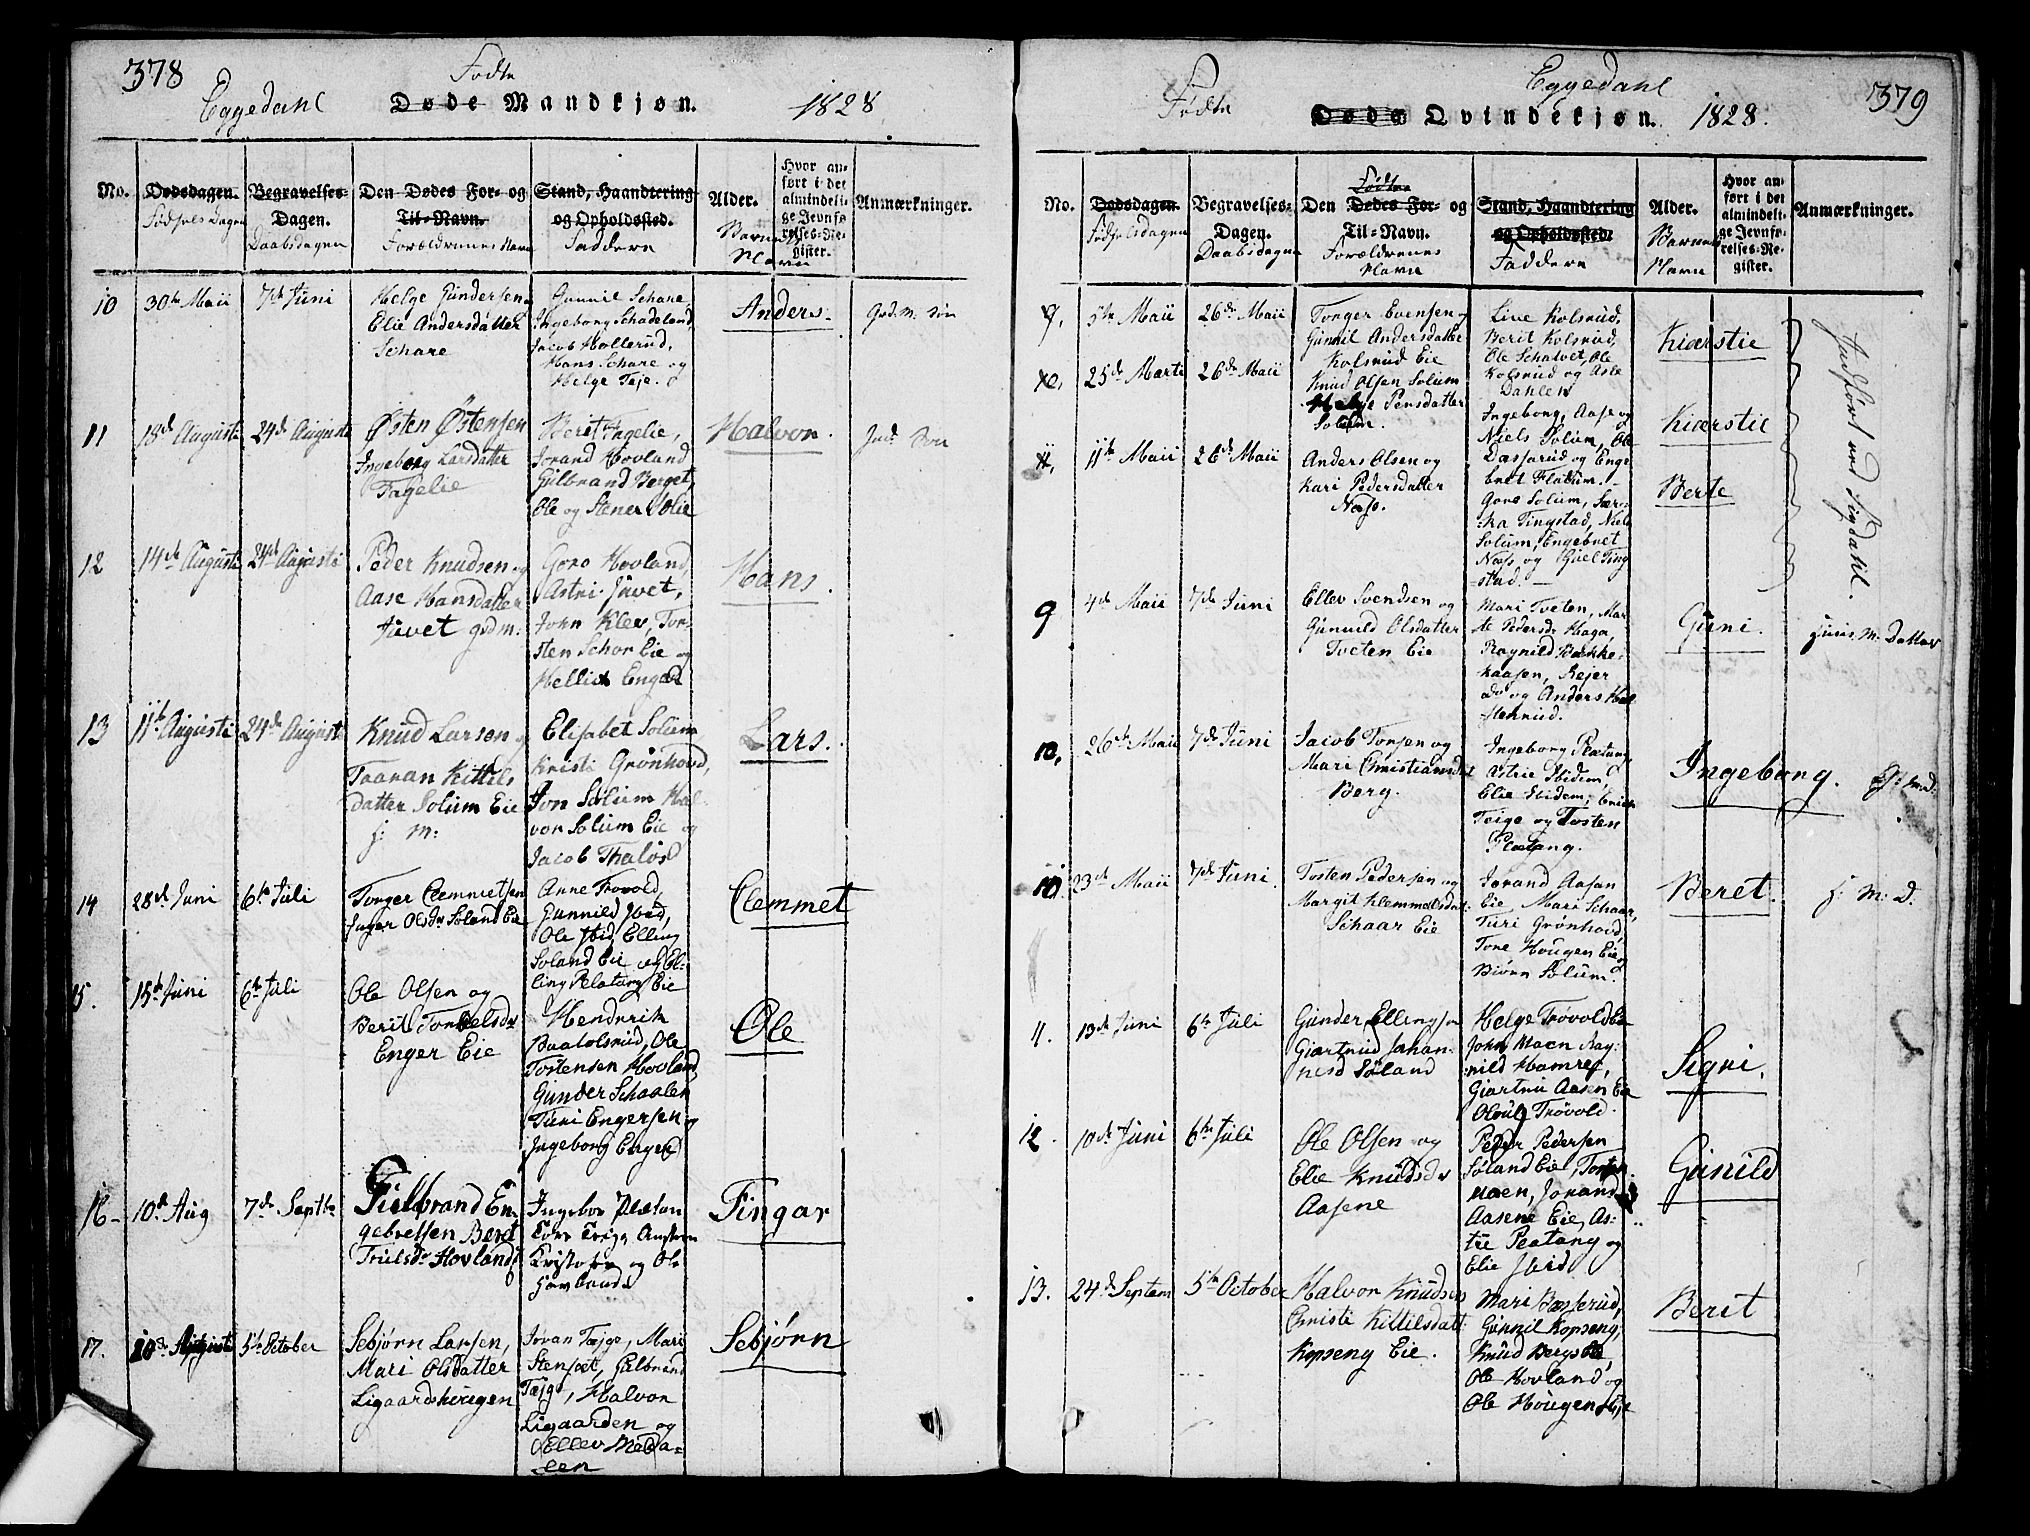 378
Eggedahl
Fødte
Døde Mandkjøn.
1828
No.
Dødsdagen.
Fødselsdagen
Begravelses-
Dagen.
Daabsdagen
Den Dødes For- og
Til-Navn.
Forældrenes Navn
Stand, Haandtering
og Opholdssted.
Faddere
Alder.
Barnets
Navn
Hvor an-
ført i det
almindeli-
ge Jevnfø-
relses-Re-
gister.
Anmærkninger.
10
30te Maii
7de Juni
Helge Gundersen
Elie Andersdatter
Schare
Gunnil Schare,
Ingeborg Schadeland
Jacob Hollerud,
Hans Schare og
Helge Teje.
Anders.
Gsd. M. Søn
11
18de Augusti
24de Augusti
Østen Østensen
Ingeborg Larsdatter
Fagelie
Berit Fagelie,
Jorand Hovland
Gulbrand Berget,
Ole og Stener Olie
Halvor.
Ind. Søn
12
14de Augusti
24de Augusti
Peder Knudsen og
Aase Hansdatter
Juvet gsdm:
Goro Hovland
Astri Juvet,
John Klev, Tor-
sten Schor Eie og
Hellik Enger
Hans.
13
11te Augusti
24de August
Knud Larsen og
Taaran Kittils
datter Solum Eie
h: m:
Elisabet Solum
Kristi Grønhovd,
Jon Solum Hal-
vor Solum Eie og
Jacob Thalös
Lars.
14
28de Juni
6te Juli
Torger Clemmetsen
Inger Olsdr Soland Eie
Anne Trovold,
Gunnild Ibid,
Ole Ibid, Elling
Soland Eie og El-
ling Platang Eie
Clemmet
15.
15de Juni
6te Juli
Ole Olsen og
Berit Torkelsdr
Enger Eie
Hendrik
Baalolsrud, Ole
Tostensen Hovland
Gunder Schaalen
Turi Engersen og
Ingeborg Enger
Ole
16-
10de Aug
7de Septbr
Gulbrand En-
gebretsen Beret
Truelsdr Hovland
Ingebor Platan
Tore Teige
Kristofer og Ole
Fingar
17.
20de Augusti
5te October
Sebjørn Larsen,
Mari Olsdatter
Ligaardshougen
Jovan Tæjge, Mari
Stenset, Gulbrand
Tæjge, Halvor
Ligaarden og
Ellev Meda-
len
Sebjørn
Fødte
Døde Qvindekjøn.
Eggedahl
1828.
379
No.
Dødsdagen.
Fødselsdagen
Begravelses-
Dagen.
Daabsdagen
Fødte
Den Dødes For- og
Til-Navn.
Forældrenes
Navn
Stand, Haandtering
og Opholdssted.
Faddere
Alder.
Barnets
Navn
Hvor an-
ført i det
almindeli-
ge Jevnfø-
relses-Re-
gister.
Anmærkninger.
9.
5te Maii
26de Maii
Torger Evensen og
Gunnil Andersdatter
Kolsrud Eie
Live Kolsrud,
Berit Kolsrud,
Ole Schalvet, Ole
Kolsrud og Asle
Dahlen
Kiærstie
Indført ved Sigdahl.
10,
25de Marti
26de Maii
Knud Olsen Solum
Helge Pensdatter
Solum.
Ingeborg, Aase og
Niels Solum, Ole
Dasserud og Enge-
bret Flatum.
Kiærstie
11,
11te Maii
26de Maii
Anders Olsen og
Kari Pedersdatter
Næss.
Goro Solum, Sær-
ka Tingstad, Niels
Solum, Engebret
Næss og Kjæl Ting-
stad.
Berte
9
4de Maii
7de Juni
Ellev Svendsen og
Gunvild Olsdatter
Tveten Eie
Mari Tveten, Mar-
te Pedersdr Hagen,
Ragnild Bække-
kaasen, Rejer
do og Anders Hal-
stenrud.
Guni.
huus. M. Datter
10,
26de Maii
7de Juni
Jacob Torsen og
Mari Christiansdat
Berg.
Ingeborg Platang
Astrie Ibidem,
Elie Ibidem, Erich
Teige og Tosten
Platang.
Ingeborg.
10
23de Maii
7de Juni.
Tosten Pedersen og
Margit Klemmetsdat:
Schaar Eie
Jorand Aasen
Eie Mari Schaar,
Turi Grønhovd,
Tone Hougen Eie og
Biørn Solum.
Beret.
h: M: D.
11.
13de Juni
6te Juli
Gunder Ellingsen
Giartrud Johan-
nesd Søland
Helge Trovold Eie
John Moen Rag-
nild Hamref,
Giartru Aasen Eie
Oluf Trøvold.
Signi.
12.
10de Juni
6te Juli
Ole Olsen og
Elie Knudsdr
Aasene
Peder Pedersen
Søland Eie, Torsten
Moen, Jorand
Aasene Eie, As-
trie Platang og
Elie Ibid
Gunild
13.
24de Septem
5te October
Halvor Knudsen
Christi Kittilsdatt:
Kopseng Eie.
Mari Basserud,
Gunnil Kopseng,
Knud Bergslie,
Ole Hovland og
Ole Hougen Eie
Berit